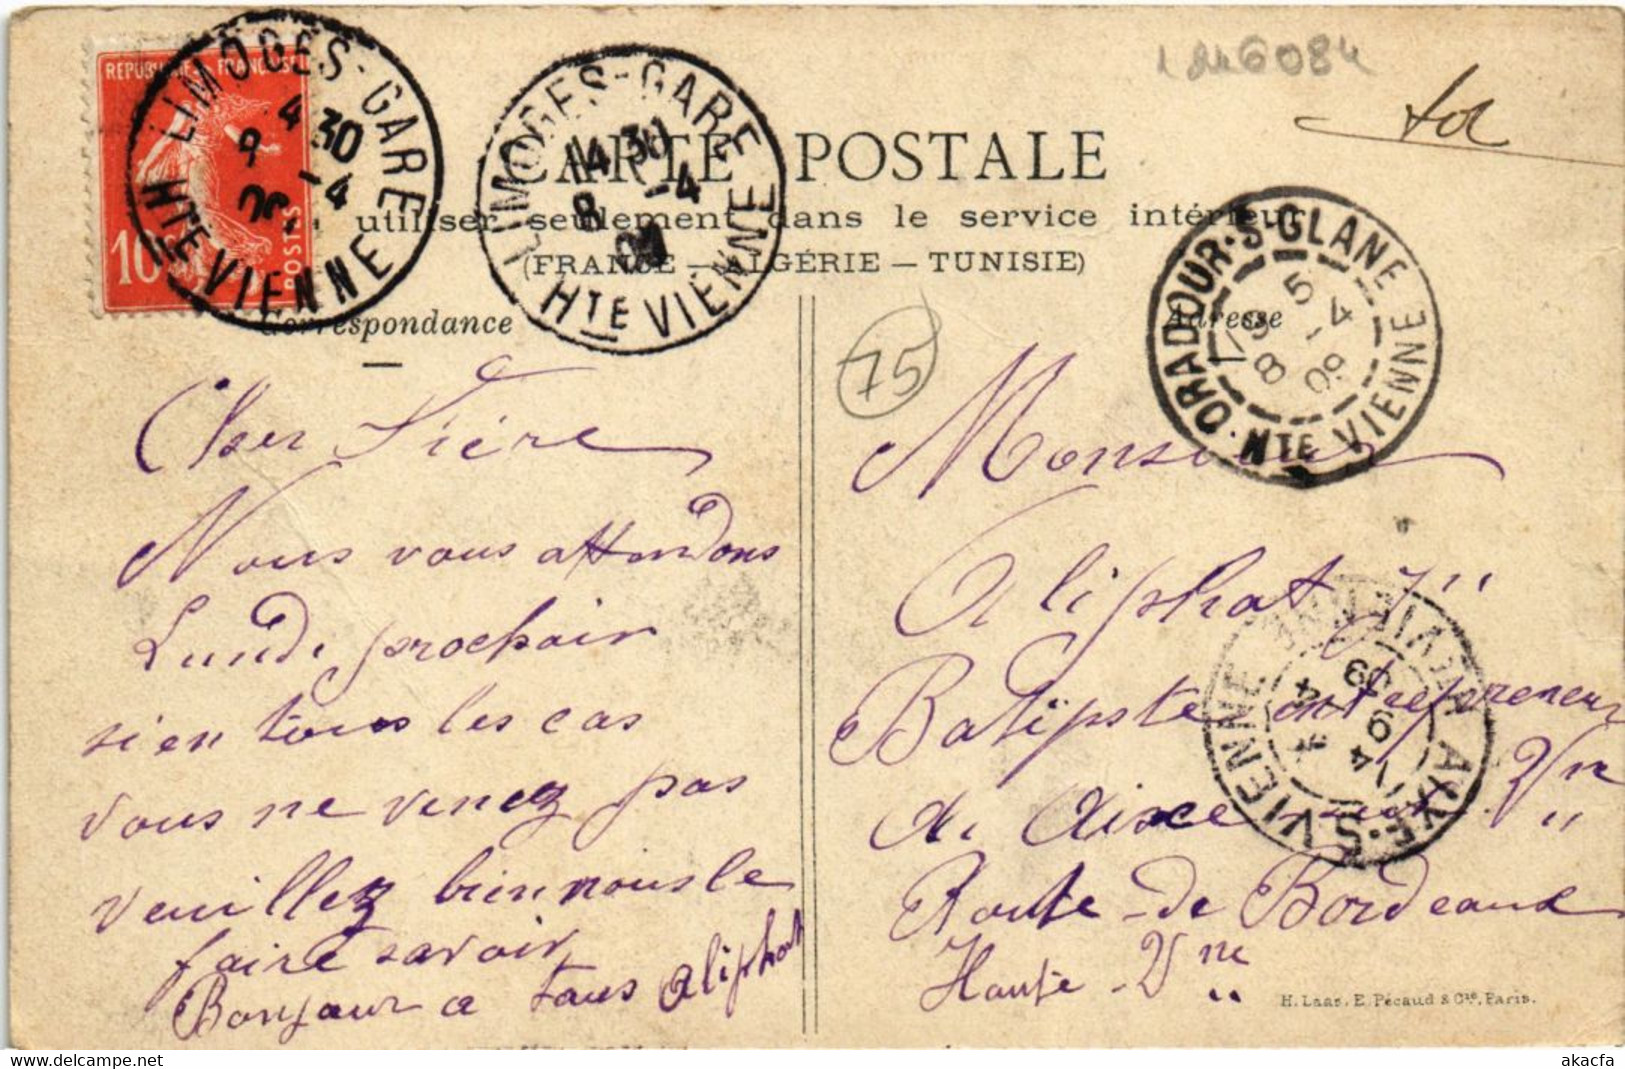 RÉPUBLIQUE FRANÇAISE
10
POSTES
LIMOGES-GARE
4 30
9 -4
HTE VIENNE
LIMOGES-GARE
14 30
8 -4
09
HTE VIENNE
CARTE POSTALE
utiliser seulement dans le service intérieur
(FRANCE — ALGÉRIE — TUNISIE)
Correspondance
Adresse
75
ORADOUR-S-GLANE
5
8 -4
09
HTE VIENNE
Cher Frère
Nous vous attendons
Lundi prochair
si en tous les cas
vous ne venez pas
veuillez bien nous le
faire savoir
Bonjour a tous Aliphat
Monsieur
Aliphat
Batipste entrepreneur
Route de Bordeaux
Haute-Vne
AIXE-S-VIENNE
H. Laas, E. Pécaud & Cie, Paris.
akacfa